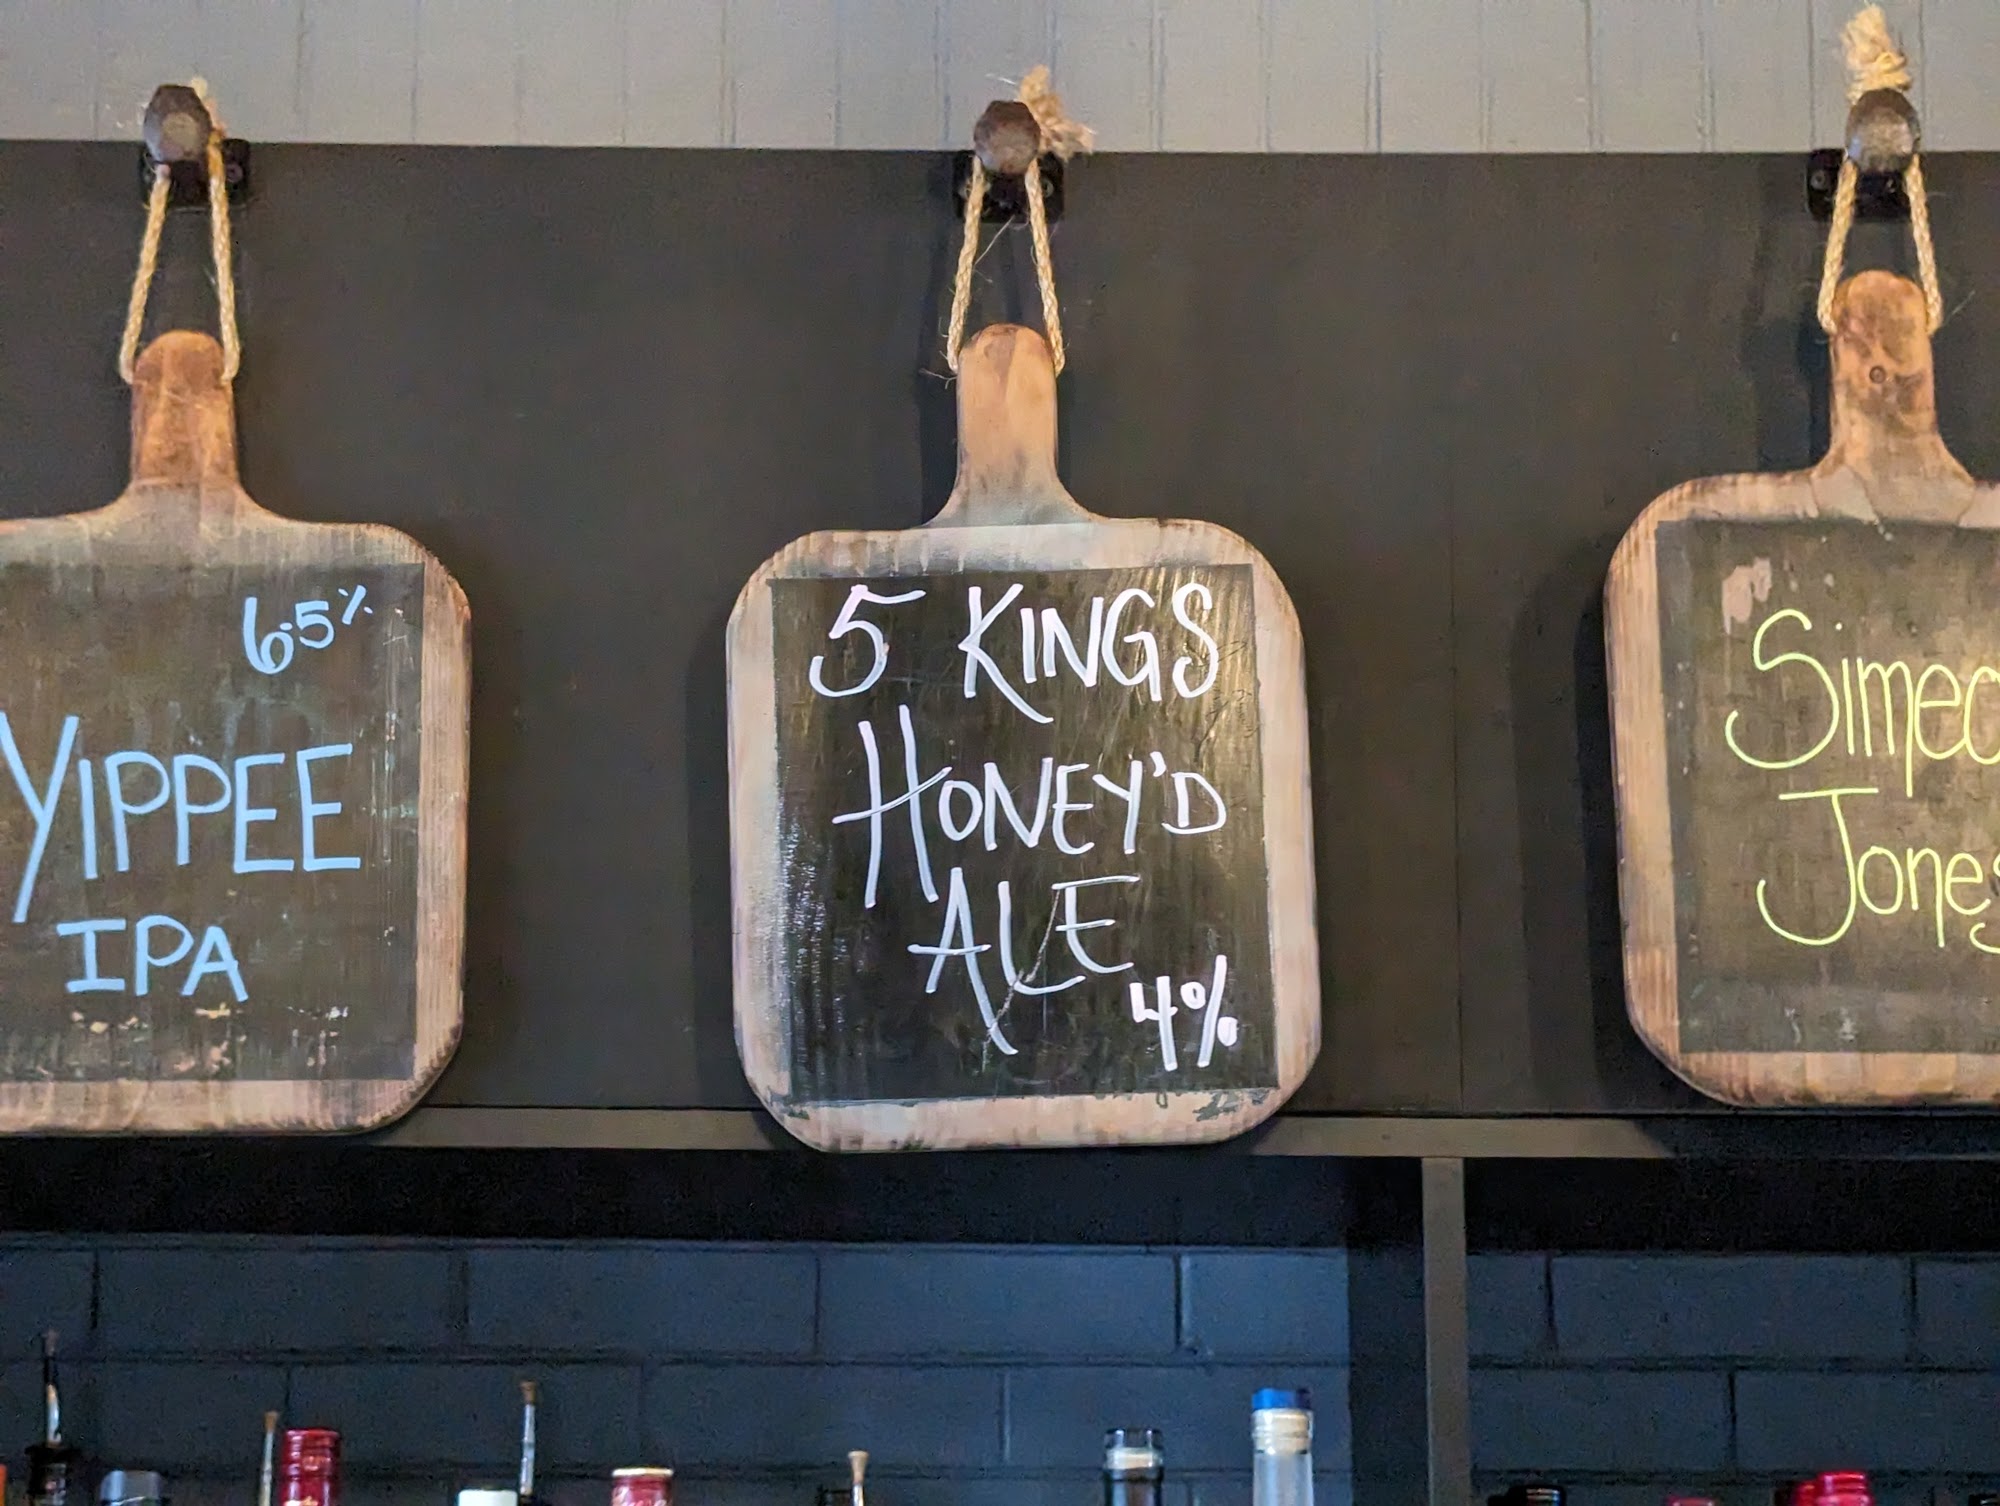 6.5%
YIPPEE
IPA
5 KINGS
HONEY'D
ALE
4%
Simeo
Jones